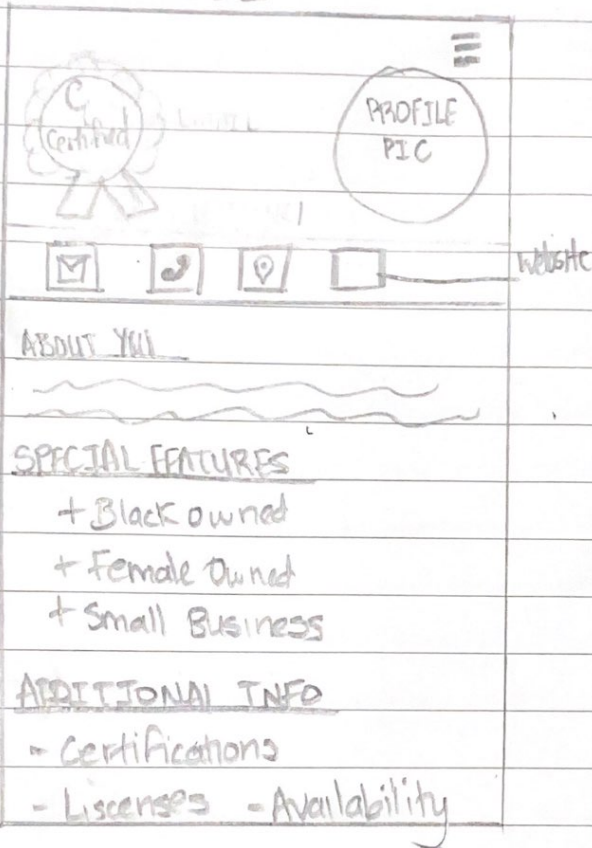 C
Certified
PROFILE
PIC
website
ABOUT YOU
SPECIAL FEATURES
+ Black owned
+ Female Owned
+ Small Business
ADDITIONAL INFO
- Certifications
- Liscenses - Availability